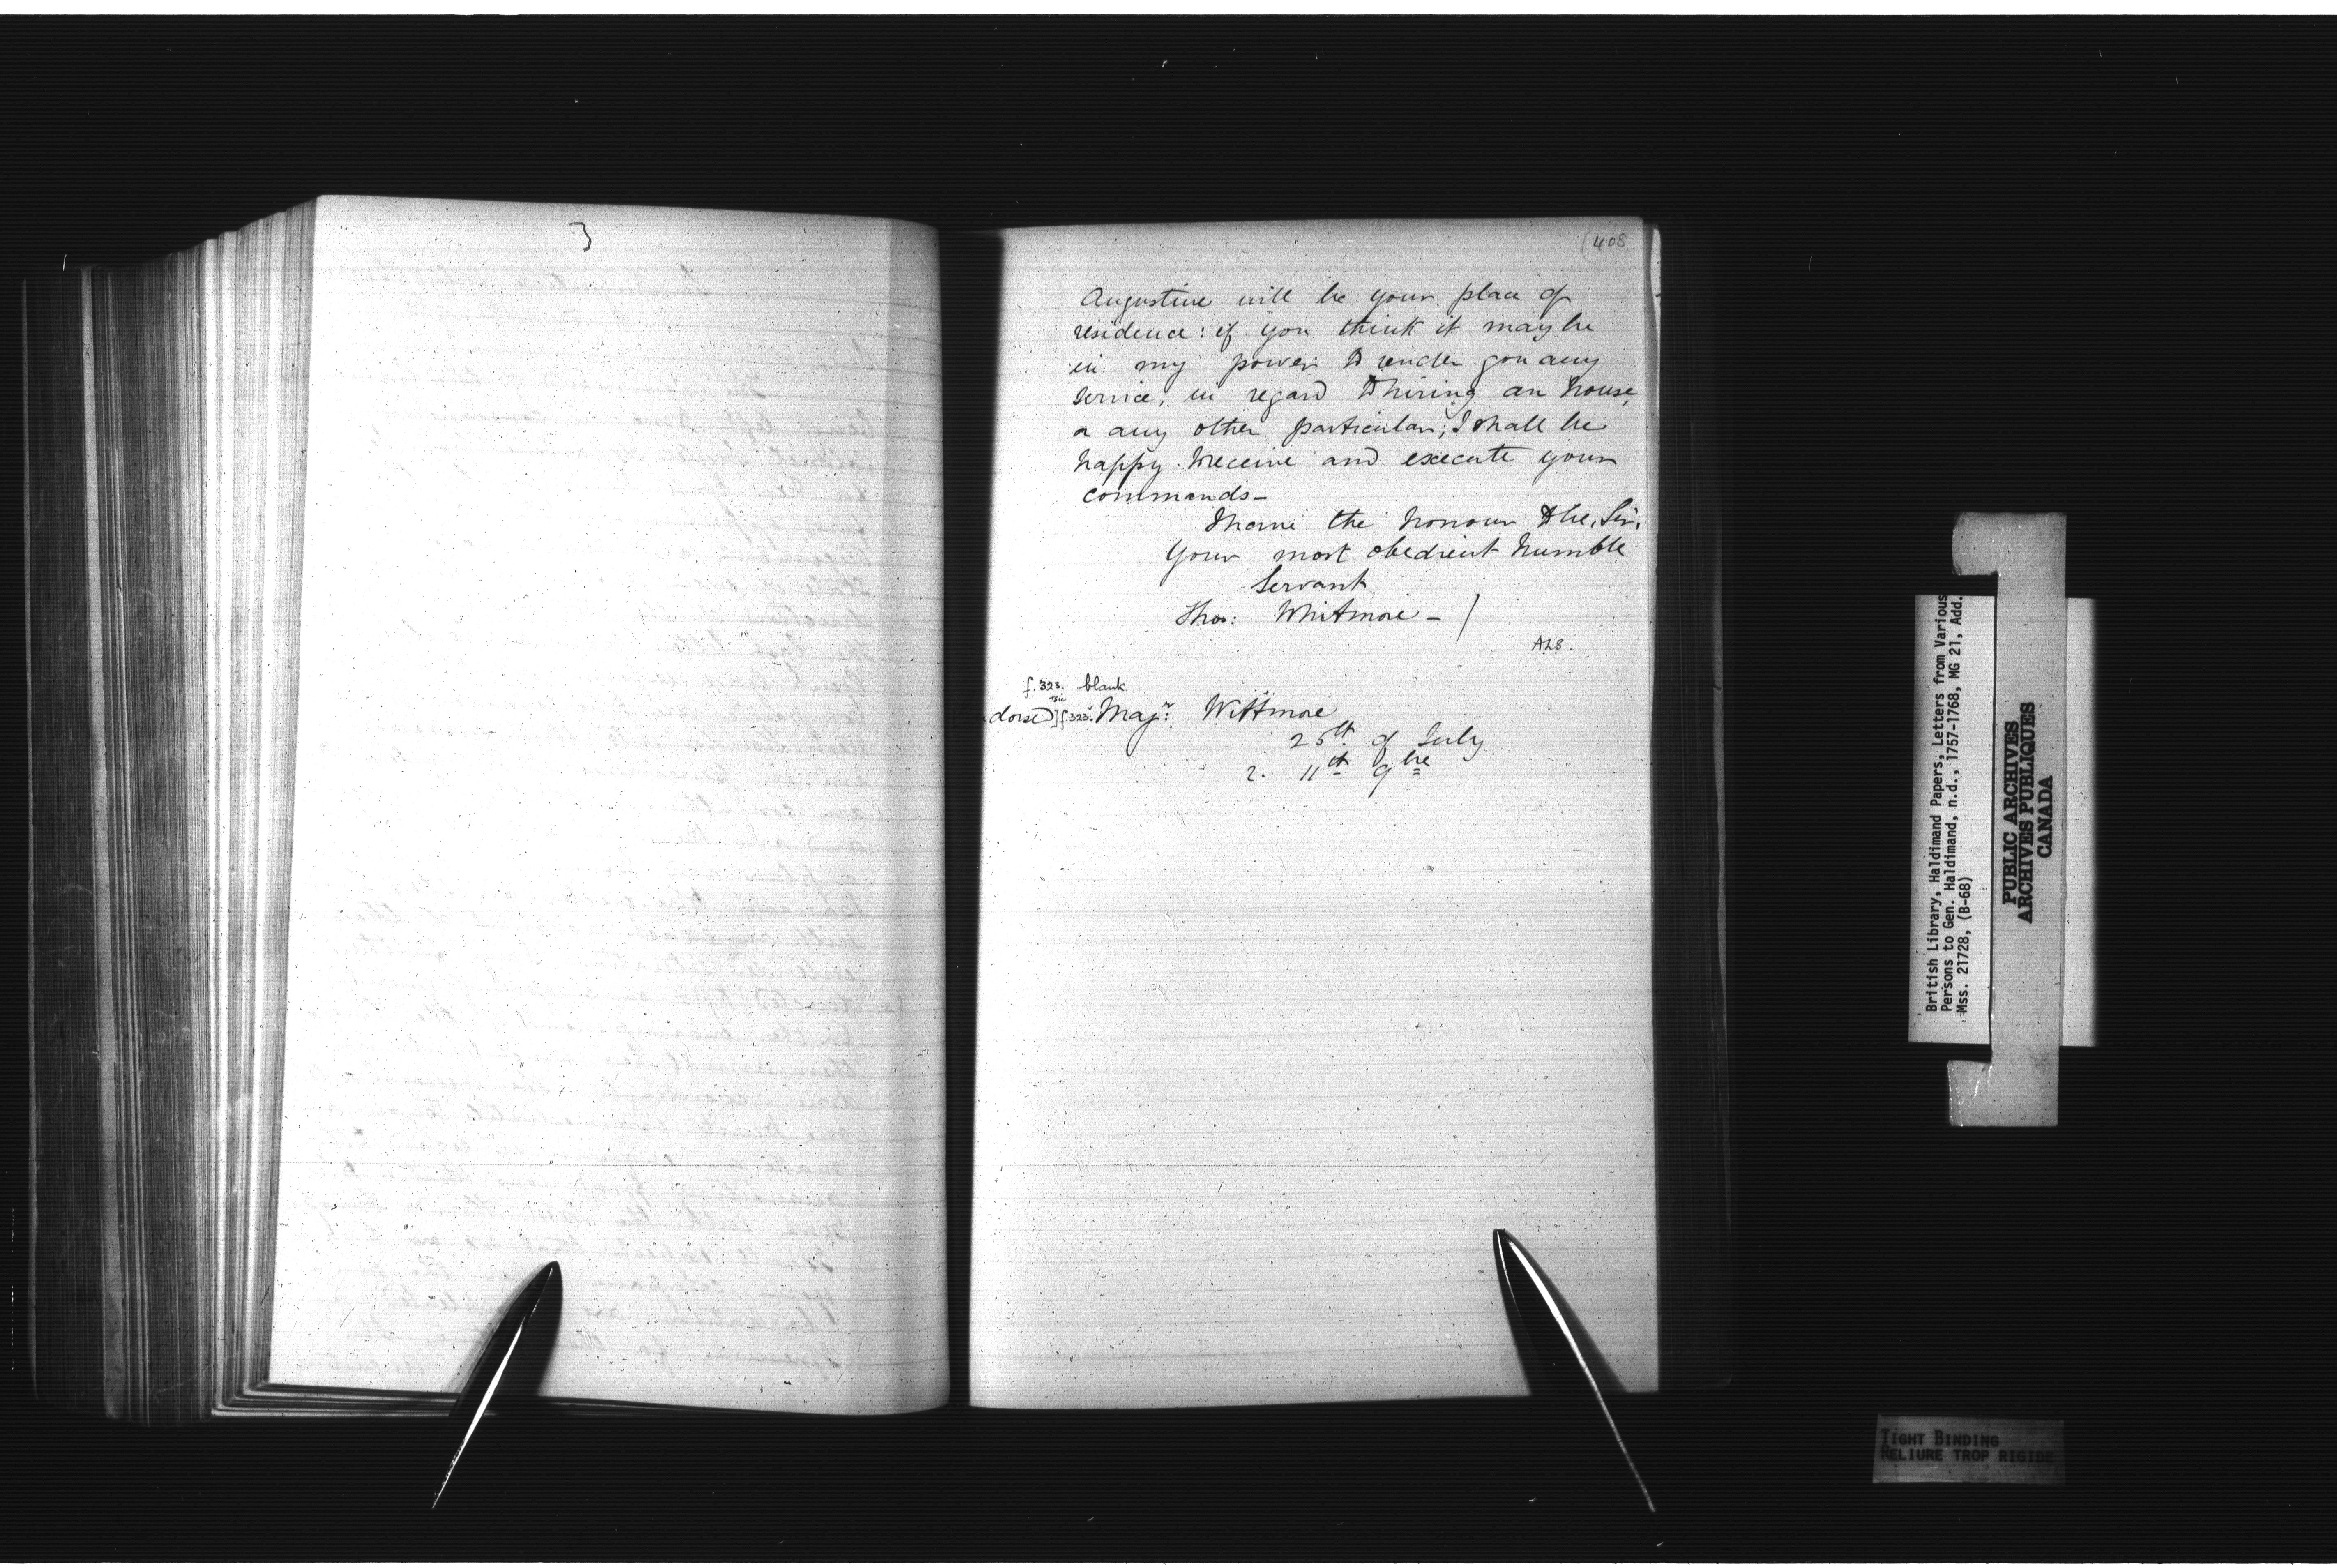 (408
Augustine will be your place of
residence: if you think it may be
in my power to render you any
service, in regard to hiring an house,
or any other particular; I shall be
happy to receive and execute your
commands –
I have the honour to be, Sir,
Your most obedient humble
Servant
Thos: Whitmore –
ALS.
f.323. blank
dorsed] f.323v. Majr: Wittmore
25th of July
2. 11th 9bre
British Library, Haldimand Papers, Letters from Various
Persons to Gen. Haldimand, n.d., 1757-1768, MG 21, Add.
Mss. 21728, (B-68)
PUBLIC ARCHIVES
ARCHIVES PUBLIQUES
CANADA
TIGHT BINDING
RELIURE TROP RIGIDE